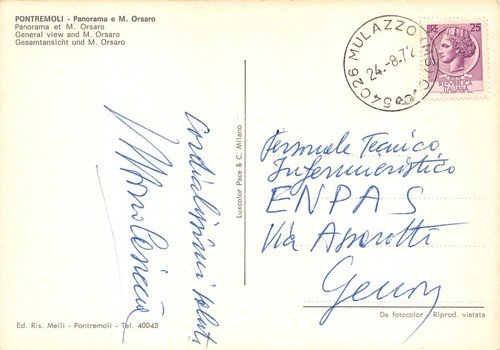 PONTREMOLI - Panorama e M. Orsaro
Panorama et M. Orsaro
General view and M. Orsaro
Gesamtansicht und M. Orsaro
54026 MULAZZO (MS)
24.-8.72
LIRE 25
REPVBBLICA
ITALIANA
Cordialissimi saluti
Luxcolor Pace & C. Milano
Personale Tecnico
Infermieristico
ENPAS
Via Assarotti
Genova
Ed. Ris. Melli - Pontremoli - Tel. 40043
Da fotocolor - Riprod. vietata